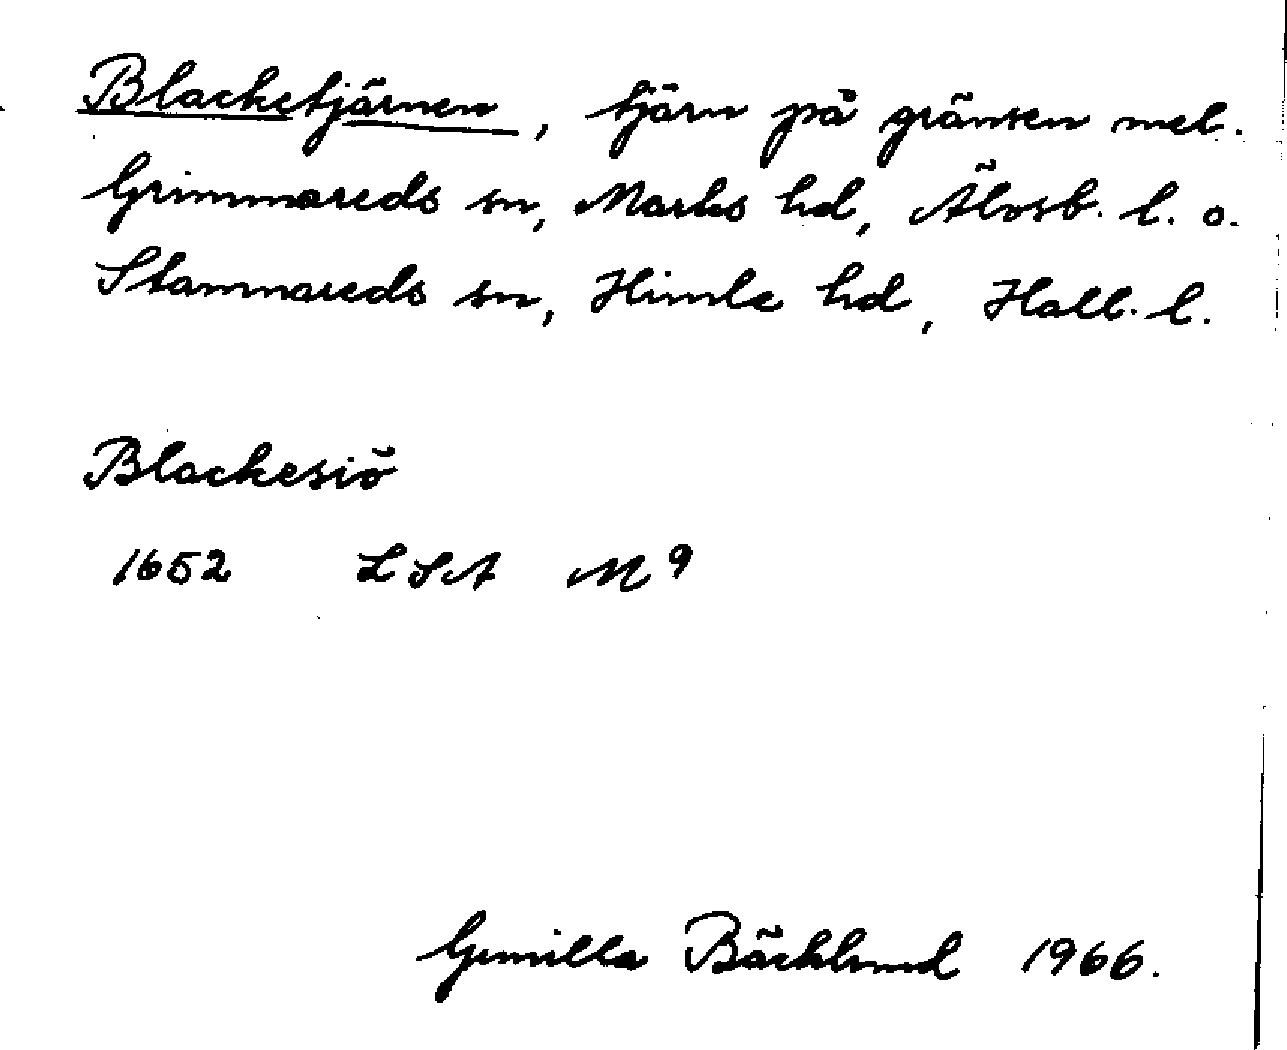 Blacketjärnen, tjärn på gränsen mel.
Grimmareds sn, Marks hd, Älvsb. l. o.
Stamnareds sn, Himle hd, Hall. l.
Blackesiö
1652 LSA M9
Gunilla Bäcklund 1966.